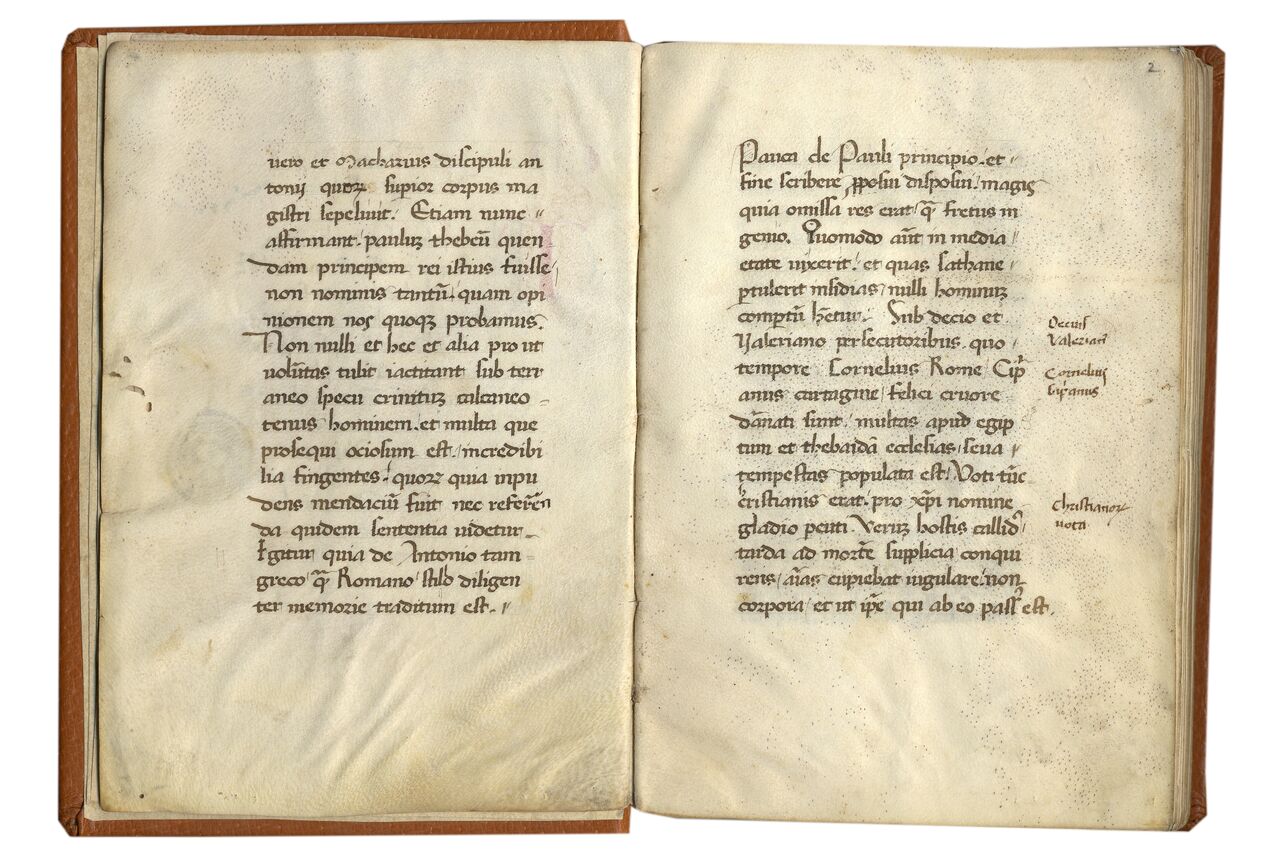 uero et Macharius discipuli an
tonij quorꝝ supior corpus ma
gistri sepeliuit. Etiam nunc
affirmant. pauluꝫ thebeū quen
dam principem rei istius fuisse
non nominis tantū. quam opi
nionem nos quoqꝫ probamus.
Non nulli et hec et alia pro ut
uolūtas tulit iactitant sub terr
aneo specu crinituꝫ calcaneo
tenus hominem. et multa que
prosequi ociosum est. incredibi
lia fingentes. quorꝝ quia inpu
dens mendaciū fuit nec referēn
da quidem sententia uidetur.
Igitur quia de Antonio tam
greco qᷓ Romano stilo diligen
ter memorie traditum est.
2
Pauca de Pauli principio. et
fine scribere ꝓposui disposui. magis
quia omissa res erat qᷓ fretus in
genio. Quomodo aūt in media
etate uixerit. et quas sathane
ꝑtulerit insidias nulli hominuꝫ
compertū hētur. Sub decio et
Valeriano persecutoribus. quo
tempore Cornelius Rome Cipͥ
anus cartagine felici cruore
dānati sunt multas apud egip
tum et thebaidā ecclesias seua
tempestas populata est. Voti tūc
cristianis erat. pro xp̄i nomine
gladio pcuti. Veruꝫ hostis callidꝰ
tarda ad mortē supplicia conqui
rens aīas cupiebat iugulare. non
corpora et ut ip̄e qui ab eo passꝰ est.
Decius
Valerian
Cornelius
Cip̄anus
Christianorꝝ
uota